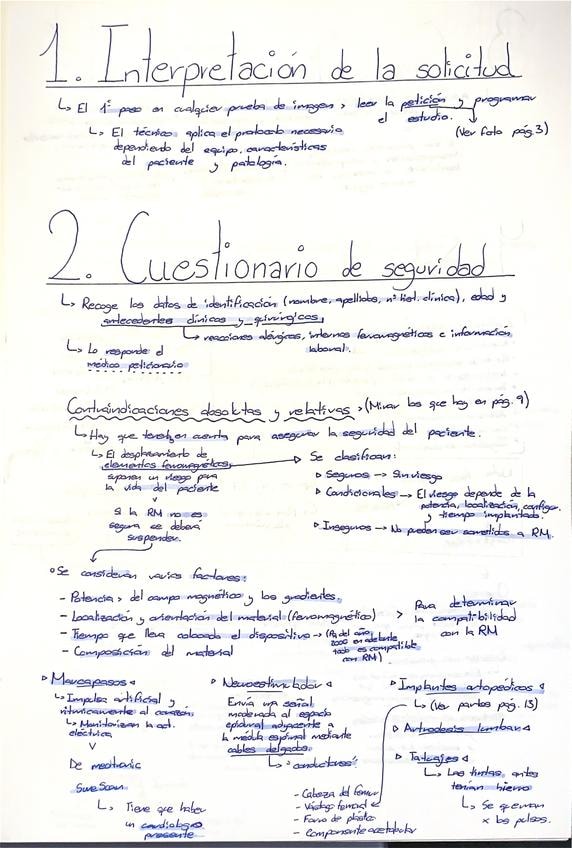 1. Interpretación de la solicitud
↳ El 1º paso en cualquier prueba de imagen > leer la petición y programar
el estudio.
(Ver foto pág. 3)
↳ El técnico aplica el protocolo necesario
dependiendo del equipo, características
del paciente y patología.
2. Cuestionario de seguridad
↳ Recoge los datos de identificación (nombre, apellidos, nº hist. clínica), edad y
antecedentes clínicos y quirúrgicos,
↳ reacciones alérgicas, internos ferromagnéticos e información
laboral.
↳ Lo responde el
médico peticionario
Contraindicaciones absolutas y relativas > (Mirar los que hay en pág. 9)
↳ Hay que tenerlos en cuenta para asegurar la seguridad del paciente.
↳ El desplazamiento de
elementos ferromagnéticos,
suponen un riesgo para
la vida del paciente
Si la RM no es
segura se deberá
suspender.
▷ Se clasifican:
▷ Seguros → Sin riesgo
▷ Condicionales → El riesgo depende de la
potencia, localización, configur.
y tiempo implantado.
▷ Inseguros → No pueden ser sometidos a RM.
• Se consideran varios factores:
- Potencia > del campo magnético y los gradientes.
- Localización y orientación del material (ferromagnético)
- Tiempo que lleva colocado el dispositivo → (Pa del año
2000 en adelante
todo es compatible
con RM)
- Composición del material
> Para determinar
la compatibilidad
con la RM
▷ Marcapasos ◁
↳ Impulso artificial y
rítmicamente al corazón.
↳ Monitorizan la act.
eléctrica
De medtronic
SureScan
↳ Tiene que haber
un cardiólogo
presente
▷ Neuroestimulador ◁
Envía una señal
moderada al espacio
epidural adyacente a
la médula espinal mediante
cables delgados.
↳ "conductores"
▷ Implantes ortopédicos ◁
↳ (Ver partes pág. 13)
- Cabeza del femur
- Vástago femoral
- Forro de plástico
- Componente acetabular
▷ Artrodesis lumbar ◁
▷ Tatuajes ◁
↳ Las tintas antes
tenían hierro
↳ Se queman
x los pulsos.